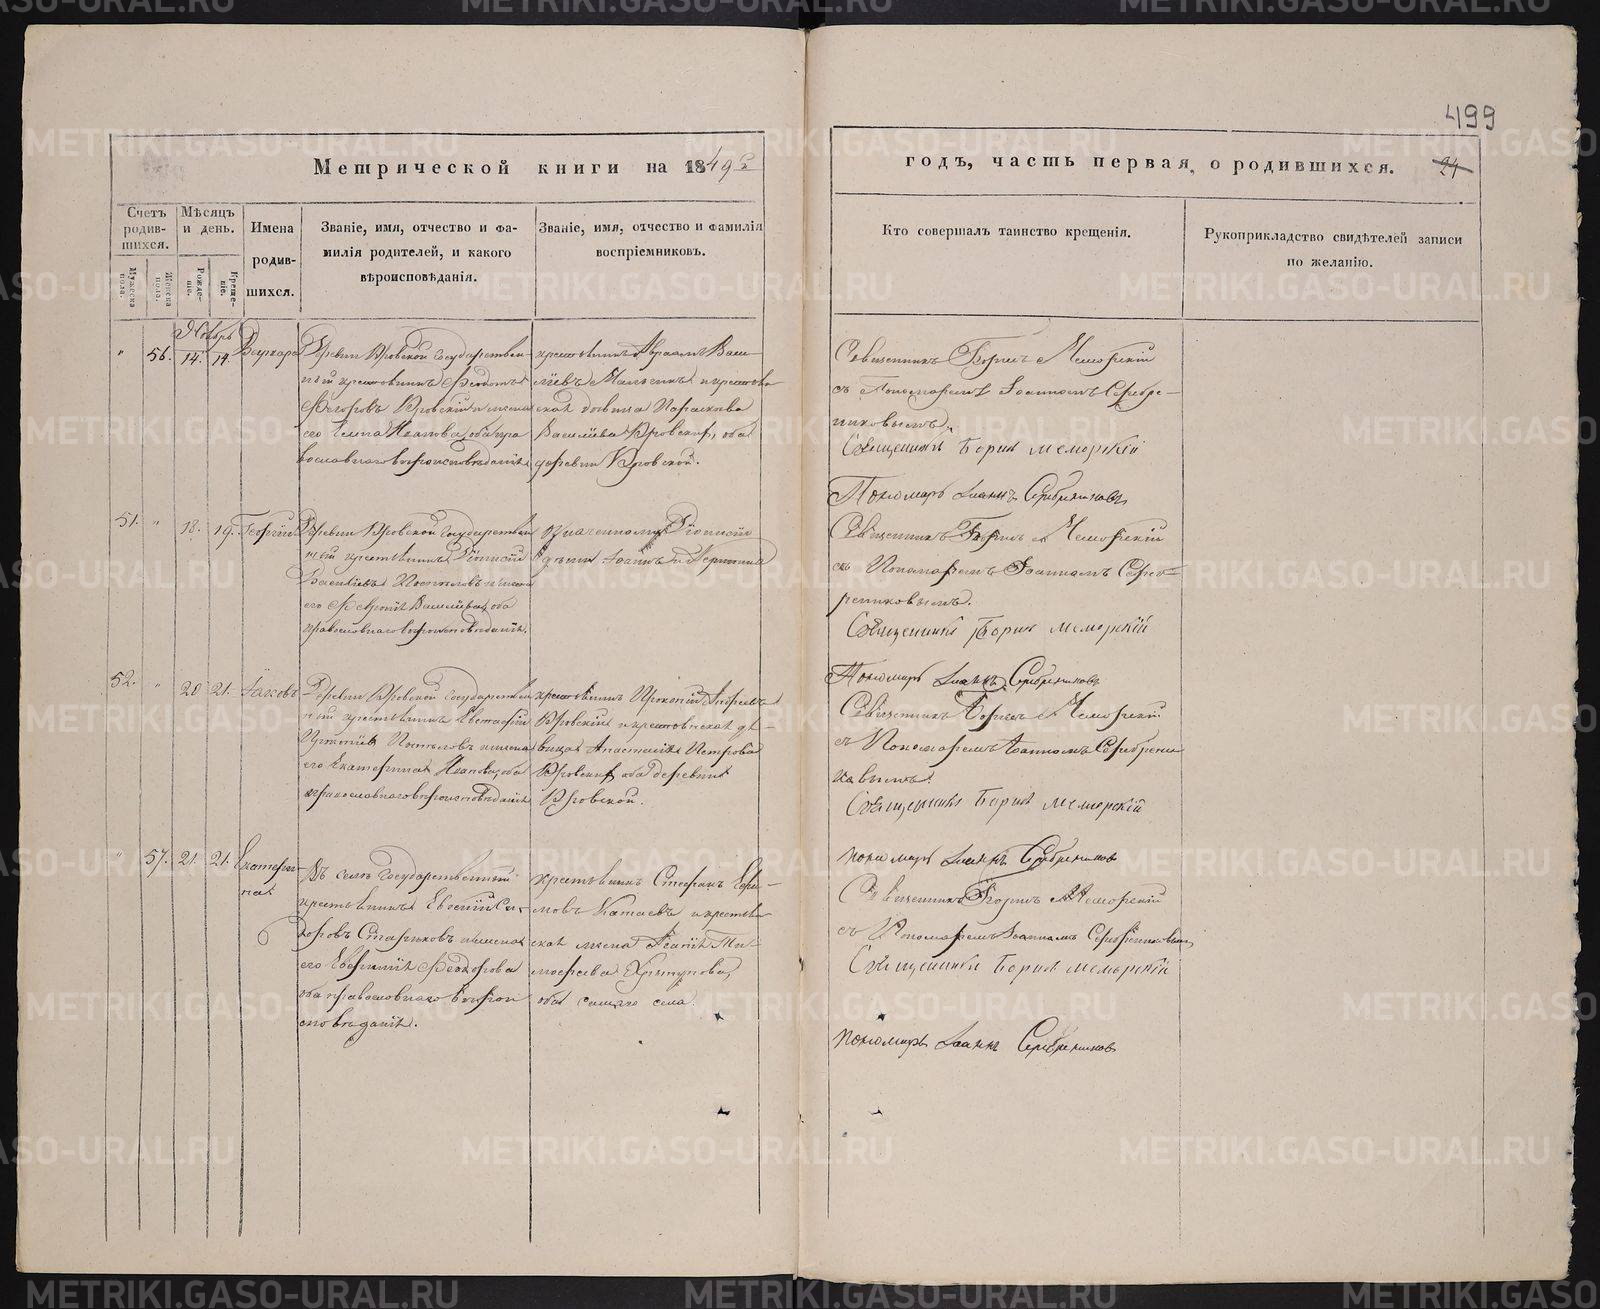 499
Метрической книги на 1849й
годъ, часть первая, о родившихся. 24
Счетъ родив-шихся.
Мужеска пола.
Женска пола.
Мѣсяцъ и день.
Рожде-ніе.
Креще-ніе.
Имена
родив-
шихся.
Званіе, имя, отчество и фа-
милія родителей, и какого
вѣроисповѣданія.
Званіе, имя, отчество и фамилія
воспріемниковъ.
Кто совершалъ таинство крещенія.
Рукоприкладство свидѣтелей записи
по желанію.
Ноябрь
" 56. 14. 14. Варвара
Деревни Кровской государствен-
ный крестьянинъ Феодотъ
Егоровъ Кровскій и жена
его Елена Иванова, оба пра
вославнаго вѣроисповѣданія
крестьянинъ Авраамъ Васи-
ліевъ и крестьян
ская дѣвица Параскева
Василіева Кровскихъ, оба
деревни Кровской.
Священникъ Борисъ Меморскій
съ Пономаремъ Іоанномъ Серебре-
никовымъ.
Священникъ Борисъ Меморскій
Пономарь Іоаннъ Серебрениковъ
51. " 18. 19. Георгій
Деревни Кровской государствен
ный крестьянинъ Діонисій
Василіевъ и жена
его Василіева, оба
православнаго вѣроисповѣданія.
Діонисій
Іоаннъ
Священникъ Борисъ Меморскій
съ Пономаремъ Іоанномъ Сереб-
рениковымъ.
Священникъ Борисъ Меморскій
Пономарь Іоаннъ Серебрениковъ
52. " 20 21. Іаковъ
Деревни Кровской государствен
ный крестьянинъ Евстафій
и жена
его Екатерина Иванова, оба
православнаго вѣроисповѣданія
крестьянинъ Прокопій Андреевъ
Кровскій и крестьянская дѣ-
вица Анастасія Петрова
Кровскихъ, оба деревни
Кровской.
Священникъ Борисъ Меморскій
съ Пономаремъ Іоанномъ Серебрени
ковымъ.
Священникъ Борисъ Меморскій
Пономарь Іоаннъ Серебрениковъ
" 57. 21. 21. Екатери-
на
Въ селѣ государственный
крестьянинъ Евсевій Си-
доровъ Стариковъ и жена
его Евгенія Феодорова
оба православнаго вѣрои
сповѣданія.
крестьянинъ Стефанъ Ефи-
мовъ Катаевъ и крестьян
ская жена Агапія Ти-
мофеева Хрипунова,
оба села.
Священникъ Борисъ Меморскій
съ Пономаремъ Іоанномъ Серебрениковымъ
Священникъ Борисъ Меморскій
Пономарь Іоаннъ Серебрениковъ
METRIKI.GASO-URAL.RU